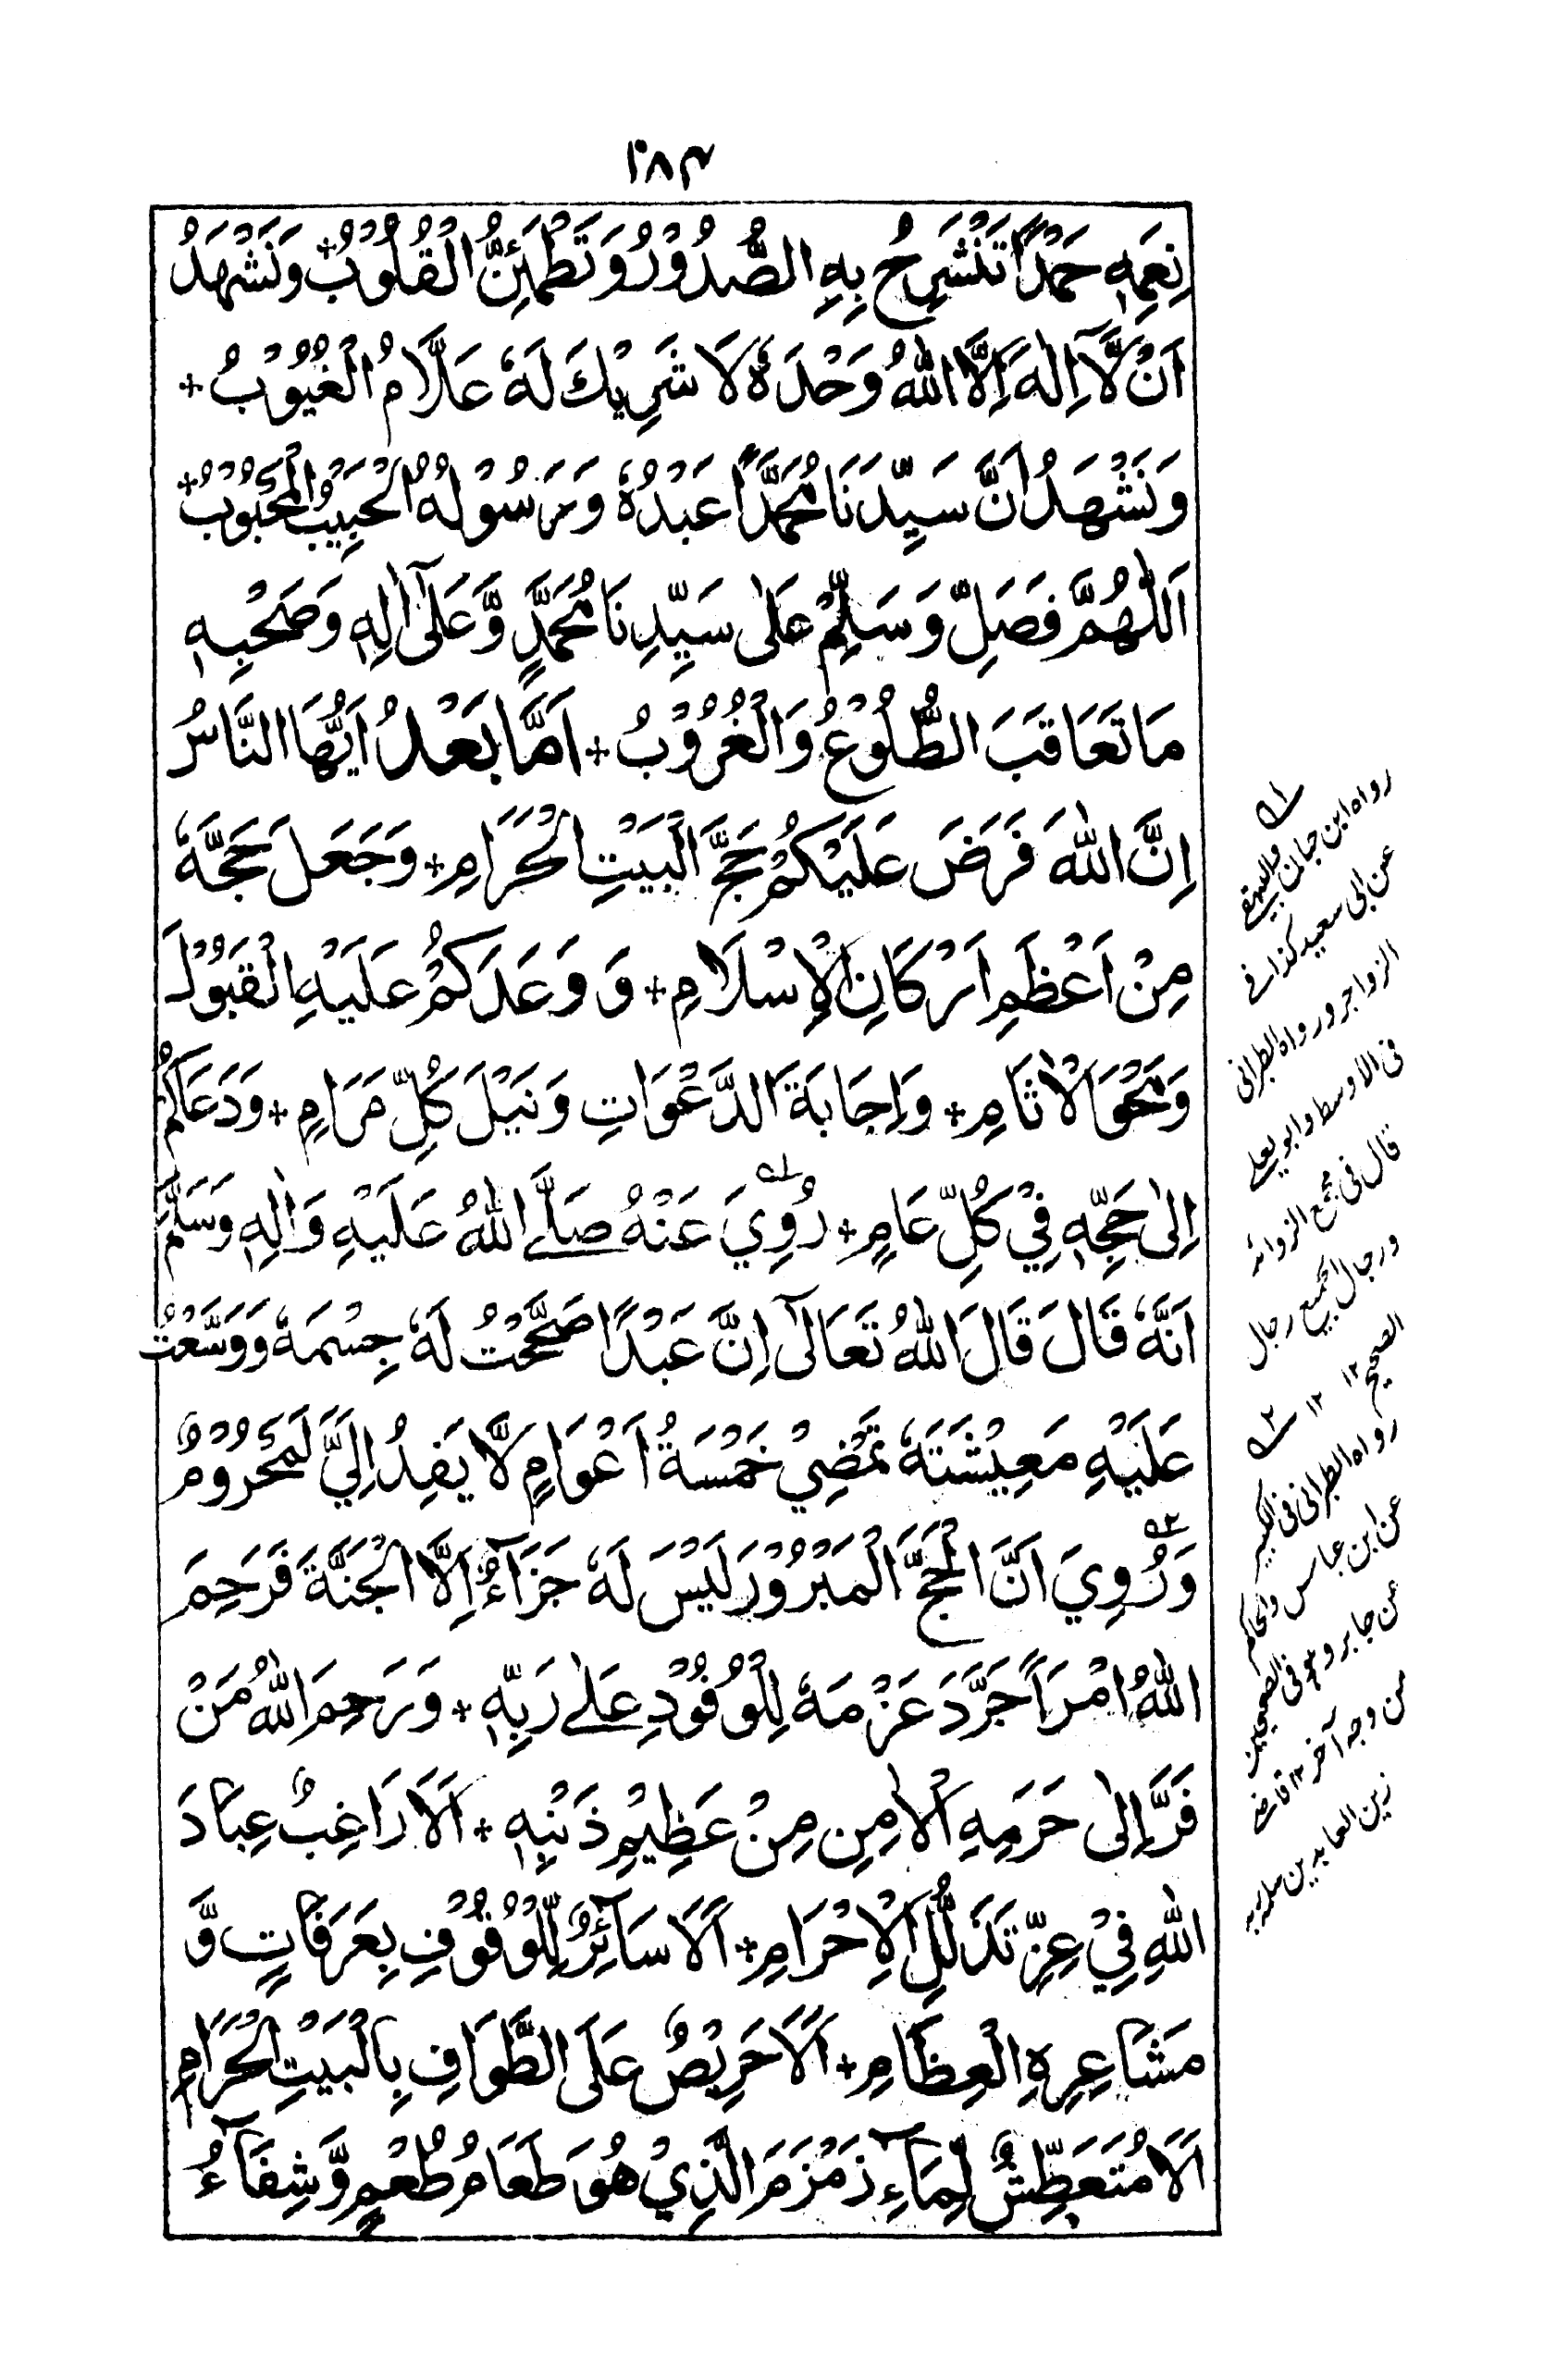 ۲۸۴
نِعَمِهٖ حَمْدًا تَنْشَرِحُ بِهِ الصُّدُوْرُ وَتَطْمَئِنُّ الْقُلُوْبُ+ وَنَشْهَدُ
اَنْ لَّآ اِلٰهَ اِلَّا اللهُ وَحْدَهٗ لَا شَرِيْكَ لَهٗ عَلَّامُ الْغُيُوْبُ+
وَنَشْهَدُ اَنَّ سَيِّدَنَا مُحَمَّدًا عَبْدُهٗ وَرَسُوْلُهُ الْحَبِيْبُ الْمَحْبُوْبُ+
اَللّٰهُمَّ فَصَلِّ وَسَلِّمْ عَلٰى سَيِّدِنَا مُحَمَّدٍ وَّعَلٰٓى اٰلِهٖ وَصَحْبِهٖ
مَا تَعَاقَبَ الطُّلُوْعُ وَالْغُرُوْبُ+ اَمَّا بَعْدُ اَيُّهَا النَّاسُ
اِنَّ اللهَ فَرَضَ عَلَيْكُمْ حَجَّ الْبَيْتِ الْحَرَامِ+ وَجَعَلَ حَجَّهٗ
مِنْ اَعْظَمِ اَرْكَانِ الْاِسْلَامِ+ وَ وَعَدَكُمْ عَلَيْهِ الْقَبُوْلَ
وَمَحْوَ الْاٰثَامِ+ وَاِجَابَةَ الدَّعْوَاتِ وَنَيْلَ كُلِّ مَرَامٍ+ وَدَعَاكُمْ
اِلٰى حَجِّهٖ فِيْ كُلِّ عَامٍ+ رُوِيَ عَنْهُ صَلَّے اللهُ عَلَيْهِ وَاٰلِهٖ وَسَلَّمَ
اَنَّهٗ قَالَ قَالَ اللهُ تَعَالٰٓى اِنَّ عَبْدًا صَحَّحْتُ لَهٗ جِسْمَهٗ وَوَسَّعْتُ
عَلَيْهِ مَعِيْشَتَهٗ تَمْضِيْ خَمْسَةُ اَعْوَامٍ لَّا يَفِدُ اِلَيَّ لَمَحْرُوْمٌ
وَرُوِيَ اَنَّ الْحَجَّ الْمَبْرُوْرَ لَيْسَ لَهٗ جَزَآءٌ اِلَّا الْجَنَّةَ فَرَحِمَ
اللهُ امْرَاً جَرَّدَ عَزْمَهٗ لِلْوُفُوْدِ عَلٰے رَبِّهٖ+ وَرَحِمَ اللهُ مَنْ
فَرَّ اِلٰى حَرَمِهِ الْاٰمِنِ مِنْ عَظِيْمِ ذَنْبِهٖ+ اَلَا رَاغِبٌ عِبَادَ
اللهِ فِيْ عِزِّ تَذَلُّلِ الْاِحْرَامِ+ اَلَا سَآئِرٌ لِّلْوُقُوْفِ بِعَرَفَاتٍ وَّ
مَشَاعِرِهِ الْعِظَامِ+ اَلَا حَرِيْصٌ عَلَى الطَّوَافِ بِالْبَيْتِ الْحَرَامِ
اَلَا مُتَعَطِّشٌ لِّمَآءِ زَمْزَمَ الَّذِيْ هُوَ طَعَامُ طُعْمٍ وَّشِفَآءُ
۱
رواه ابن حبان والبيهقے
عن ابى سعيد كذا فے
الزواجر ورواه الطبرانى
فى الاوسط وابو يعلے
قال فى مجمع الزوائد
ورجال الجميع رجال
الصحيح ۱۲ ۱۲
۲
رواه الطبرانى فى الكبير
عن ابن عباس والحاكم
عن جابر وهو فى الصحيحين
من وجه آخر ۱۲ قاضے
زين العابدين